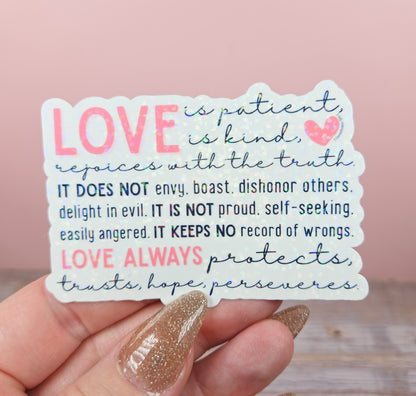 LOVE is patient,
is kind,
rejoices with the truth.
IT DOES NOT envy. boast. dishonor others.
delight in evil. IT IS NOT proud. self-seeking.
easily angered. IT KEEPS NO record of wrongs.
LOVE ALWAYS protects,
trusts, hope, perseveres.